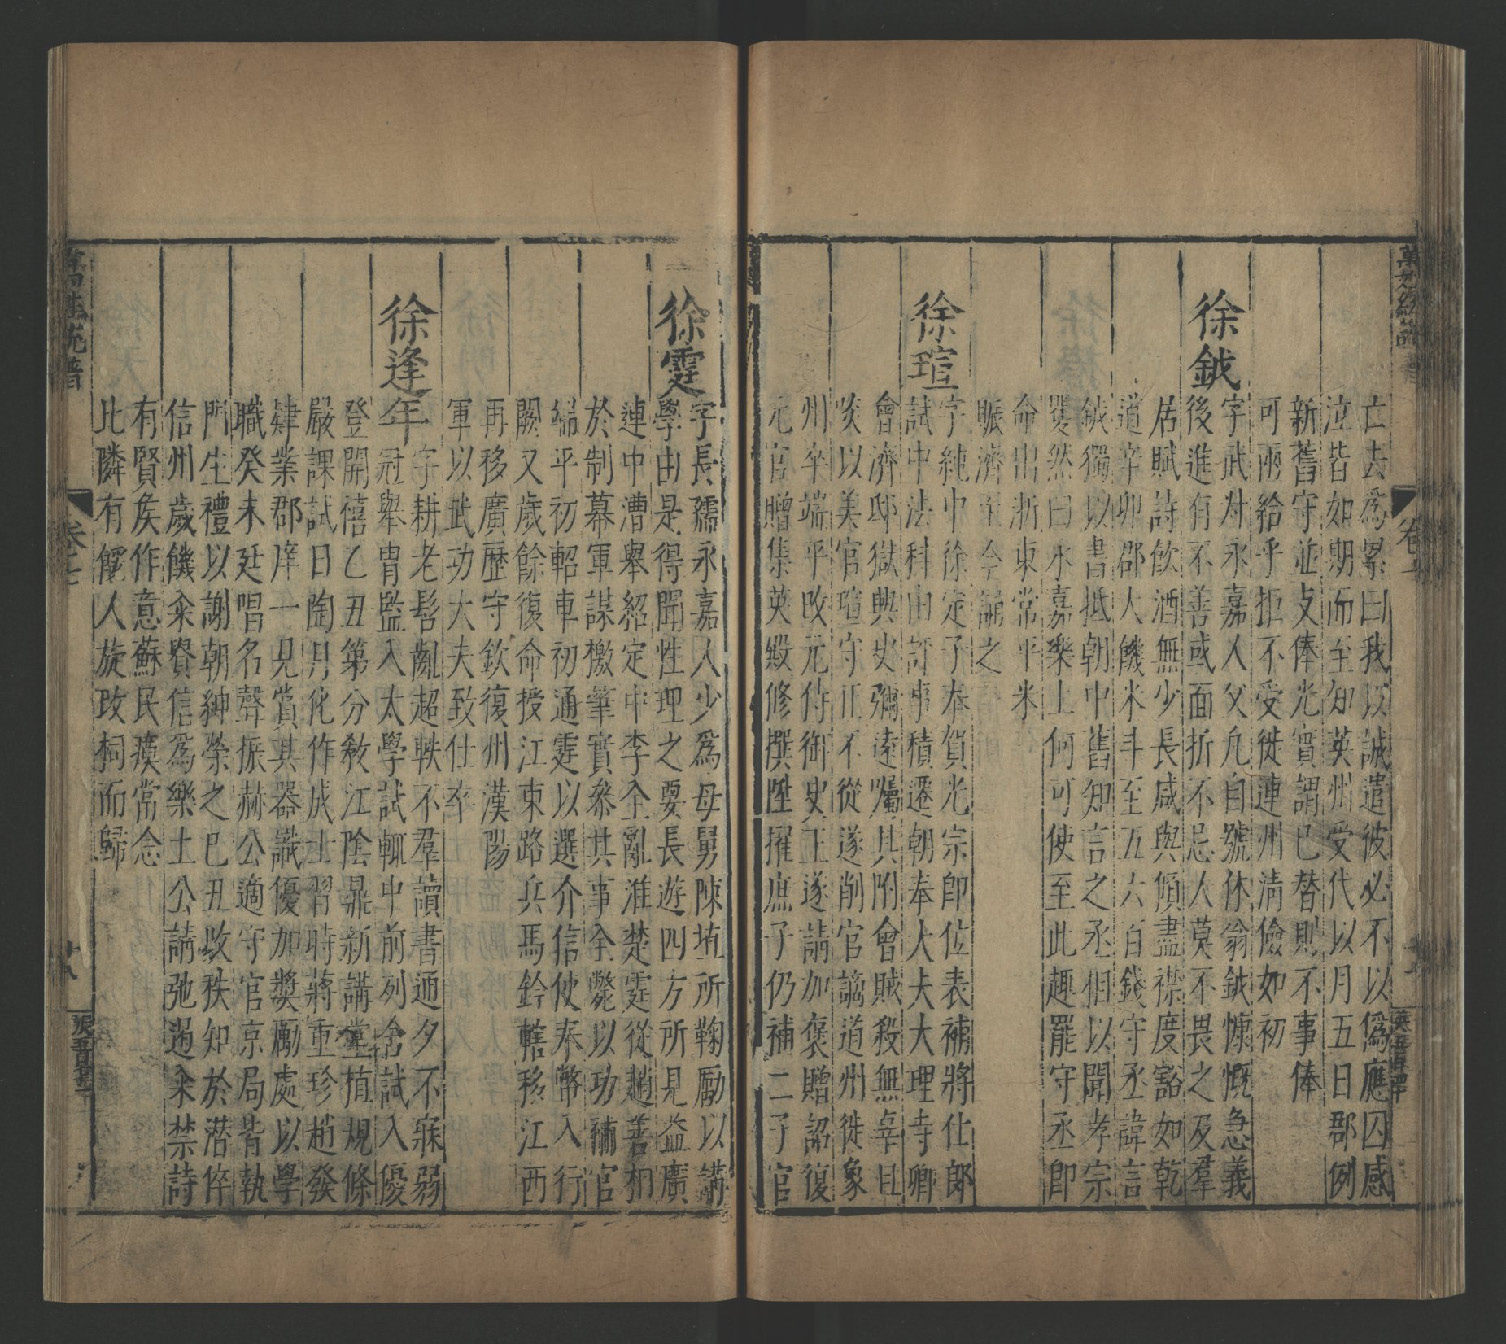 亡去爲累曰我以誠遣彼必不以僞應囚感
泣皆如期而至知英州受代以月五日郡例
新舊守並支俸光實謂已替則不事俸
可兩給乎拒不受徙連州淸儉如初
徐鉞
字武叔永嘉人父允自號休翁鉞慷慨急義
後進有不善或面折不忌人莫不畏之及羣
居賦詩飮酒無少長咸與傾盡襟度豁如乾
道辛卯郡大饑米斗至五六百錢守丞諱言
鉞獨以書抵朝中舊知言之丞相以聞孝宗
矍然曰永嘉樂土何可使至此趣罷守丞卽
命出浙東常平米
賑濟至今誦之
徐瑄
字純中徐定子奉賀光宗卽位表補將仕郞
試中法科由評事積遷朝奉大夫大理寺卿
會濟邸獄與史彌遠囑其附會賊殺無辜且
啖以美官瑄守正不從遂削官謫道州徙象
州卒端平改元侍御史王遂請加褒贈詔復
元官贈集英殿修撰陞擢庶子仍補二子官
徐霆
字長孺永嘉人少爲母舅陳埴所鞠勵以講
學由是得聞性理之要長遊四方所見益廣
連中漕舉紹定中李全亂淮楚霆從趙善相
於制幕軍謀檄筆實參其事全斃以功補官
端平初軺車初通霆以選介信使奉幣入行
闕又歲餘復命授江東路兵馬鈐轄移江西
再移廣歷守欽復州漢陽
軍以武功大夫致仕卒
徐逢年
字耕老髫齔超軼不羣讀書通夕不寐弱
冠舉胄監入太學試輒中前列舍試入優
登開禧乙丑第分敎江陰鼎新講堂植規條
嚴課試日陶月化作成士習時蔣重珍趙發
肄業郡庠一見賞其器識優加奬勵處以學
職癸未廷唱名聲振赫公適守官京局皆執
門生禮以謝朝紳榮之巳丑改秩知於潛倅
信州歲饑籴賚信爲樂土公請弛遏籴禁詩
有賢矦作意蘇民瘼常念
比隣有餒人旋改祠而歸
萬姓統譜
卷之七